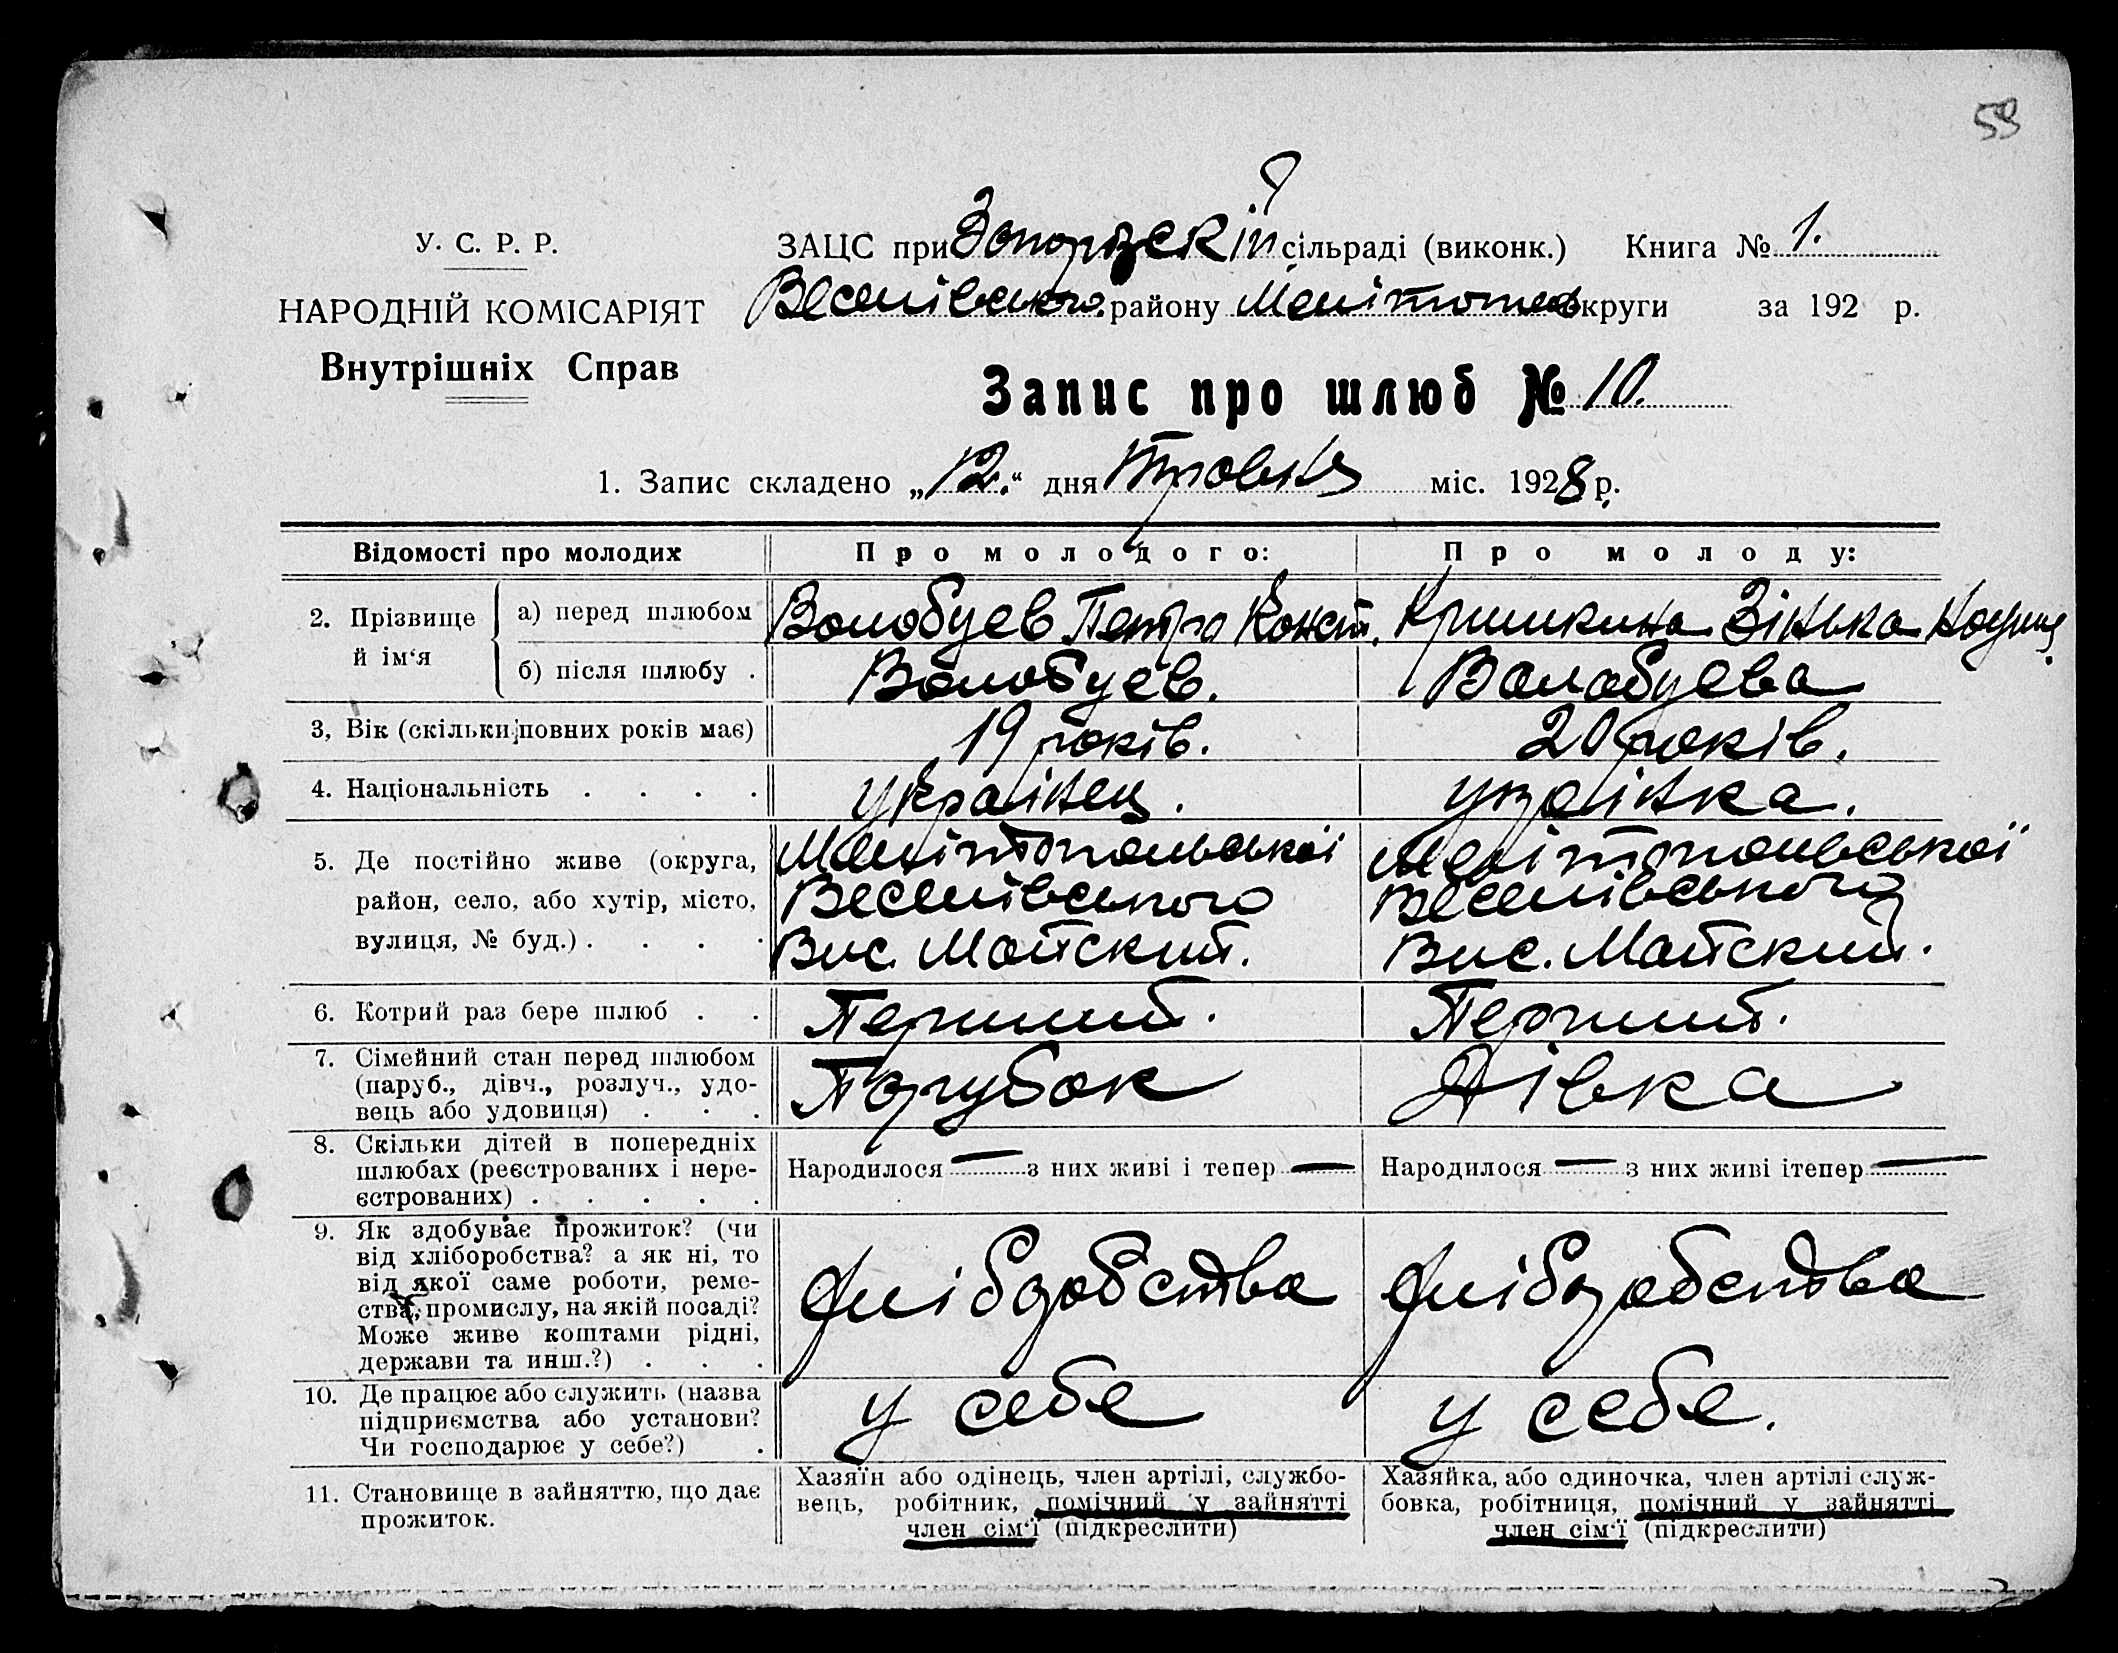 59
У. С. Р. Р.
НАРОДНІЙ КОМІСАРІЯТ
Внутрішніх Справ
ЗАЦС при Запорізскій сільраді (виконк.) Книга № 1.
Веселівського району Мелітопол округи за 192 р.
Запис про шлюб № 10.
1. Запис складено „12.“ дня Травня міс. 1928 р.
Відомості про молодих
Про молодого:
Про молоду:
2. Прізвище й ім‘я
а) перед шлюбом
Волобуєв Петро Конст.
Кришкина Зінька
б) після шлюбу .
Волобуєв.
Волобуєва
3, Вік (скільки повних років має)
19 років.
20 років.
4. Національність . . . .
українец.
українка.
5. Де постійно живе (округа,
район, село, або хутір, місто,
вулиця, № буд.) . . . .
Мелітопольської
Веселівського
Вис. Майский.
Мелітопольської
Веселівського
Вис. Майский.
6. Котрий раз бере шлюб . .
Перший.
Перший.
7. Сімейний стан перед шлюбом
(паруб., дівч., розлуч., удо-
вець або удовиця) . . .
Парубок
Дівка
8. Скільки дітей в попередніх
шлюбах (реєстрованих і нере-
єстрованих) . . . . .
Народилося — з них живі і тепер —
Народилося — з них живі ітепер —
9. Як здобуває прожиток? (чи
від хліборобства? а як ні, то
від якої саме роботи, реме-
ства, промислу, на якій посаді?
Може живе коштами рідні,
держави та инш.?) . . .
хліборобства
хліборобства
10. Де працює або служить (назва
підприємства або установи?
Чи господарює у себе?) .
у себе
у себе.
11. Становище в зайняттю, що дає
прожиток.
Хазяїн або одінець, член артілі, службо-
вець, робітник, помічний у зайнятті
член сім‘ї (підкреслити)
Хазяйка, або одиночка, член артілі служ-
бовка, робітниця, помічний у зайнятті
член сім‘ї (підкреслити)